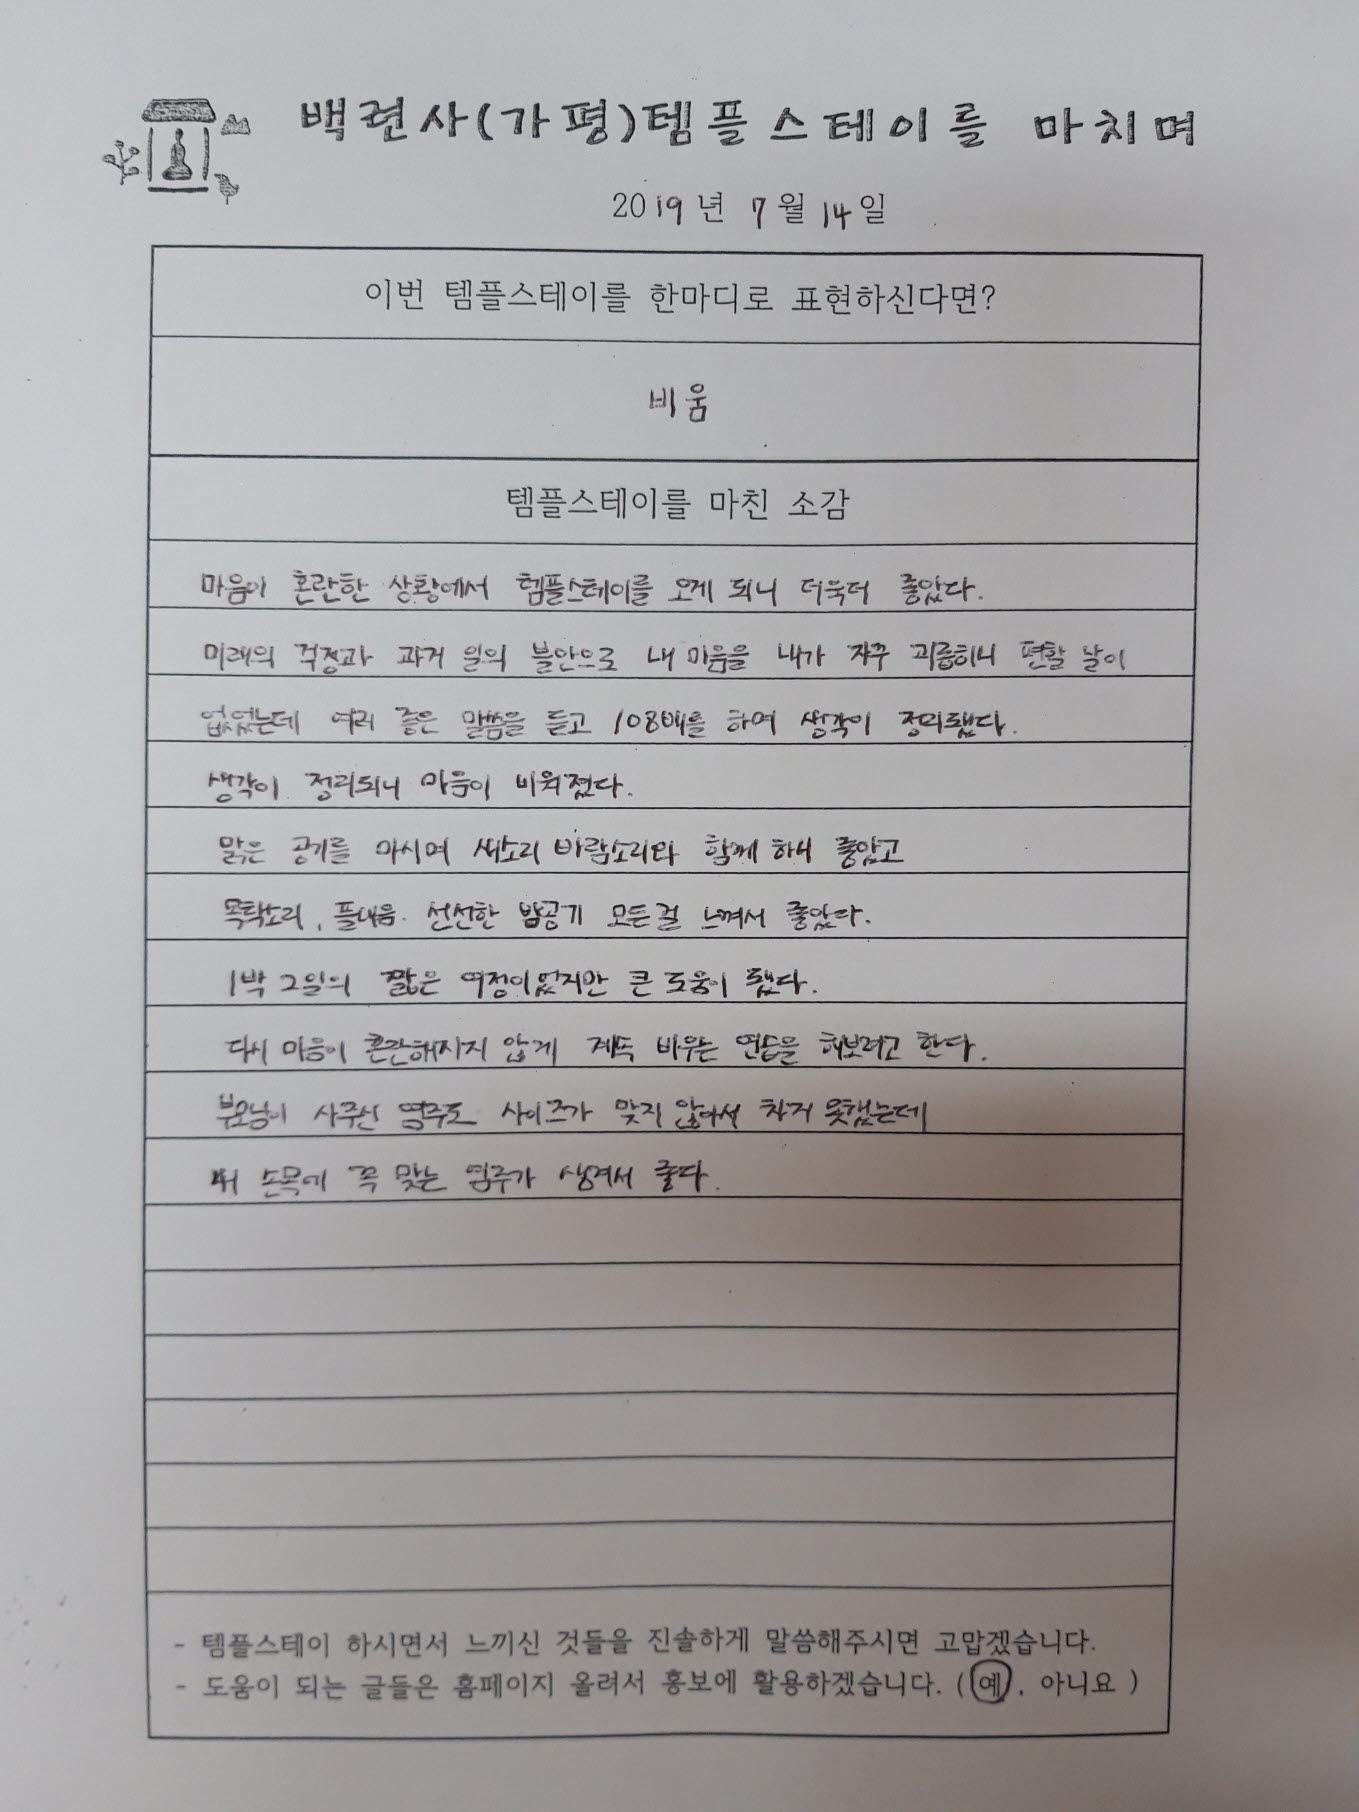 백련사(가평)템플스테이를 마치며
2019년 7월 14일
이번 템플스테이를 한마디로 표현하신다면?
비움
템플스테이를 마친 소감
마음이 혼란한 상황에서 템플스테이를 오게 되니 더욱더 좋았다.
미래의 걱정과 과거 일의 불안으로 내 마음을 내가 자꾸 괴롭히니 편할 날이
없었는데 여러 좋은 말씀을 듣고 108배를 하며 생각이 정리됐다.
생각이 정리되니 마음이 비워졌다.
맑은 공기를 마시며 새소리 바람소리와 함께 하니 좋았고
목탁소리, 풀내음. 선선한 밤공기 모든걸 느껴서 좋았다.
1박 2일의 짧은 여정이었지만 큰 도움이 됐다.
다시 마음이 혼란해지지 않게 계속 비우는 연습을 해보려고 한다.
부모님이 사주신 염주도 사이즈가 맞지 않아서 차지 못했는데
내 손목에 꼭 맞는 염주가 생겨서 좋다.
- 템플스테이 하시면서 느끼신 것들을 진솔하게 말씀해주시면 고맙겠습니다.
- 도움이 되는 글들은 홈페이지 올려서 홍보에 활용하겠습니다. (예, 아니요)